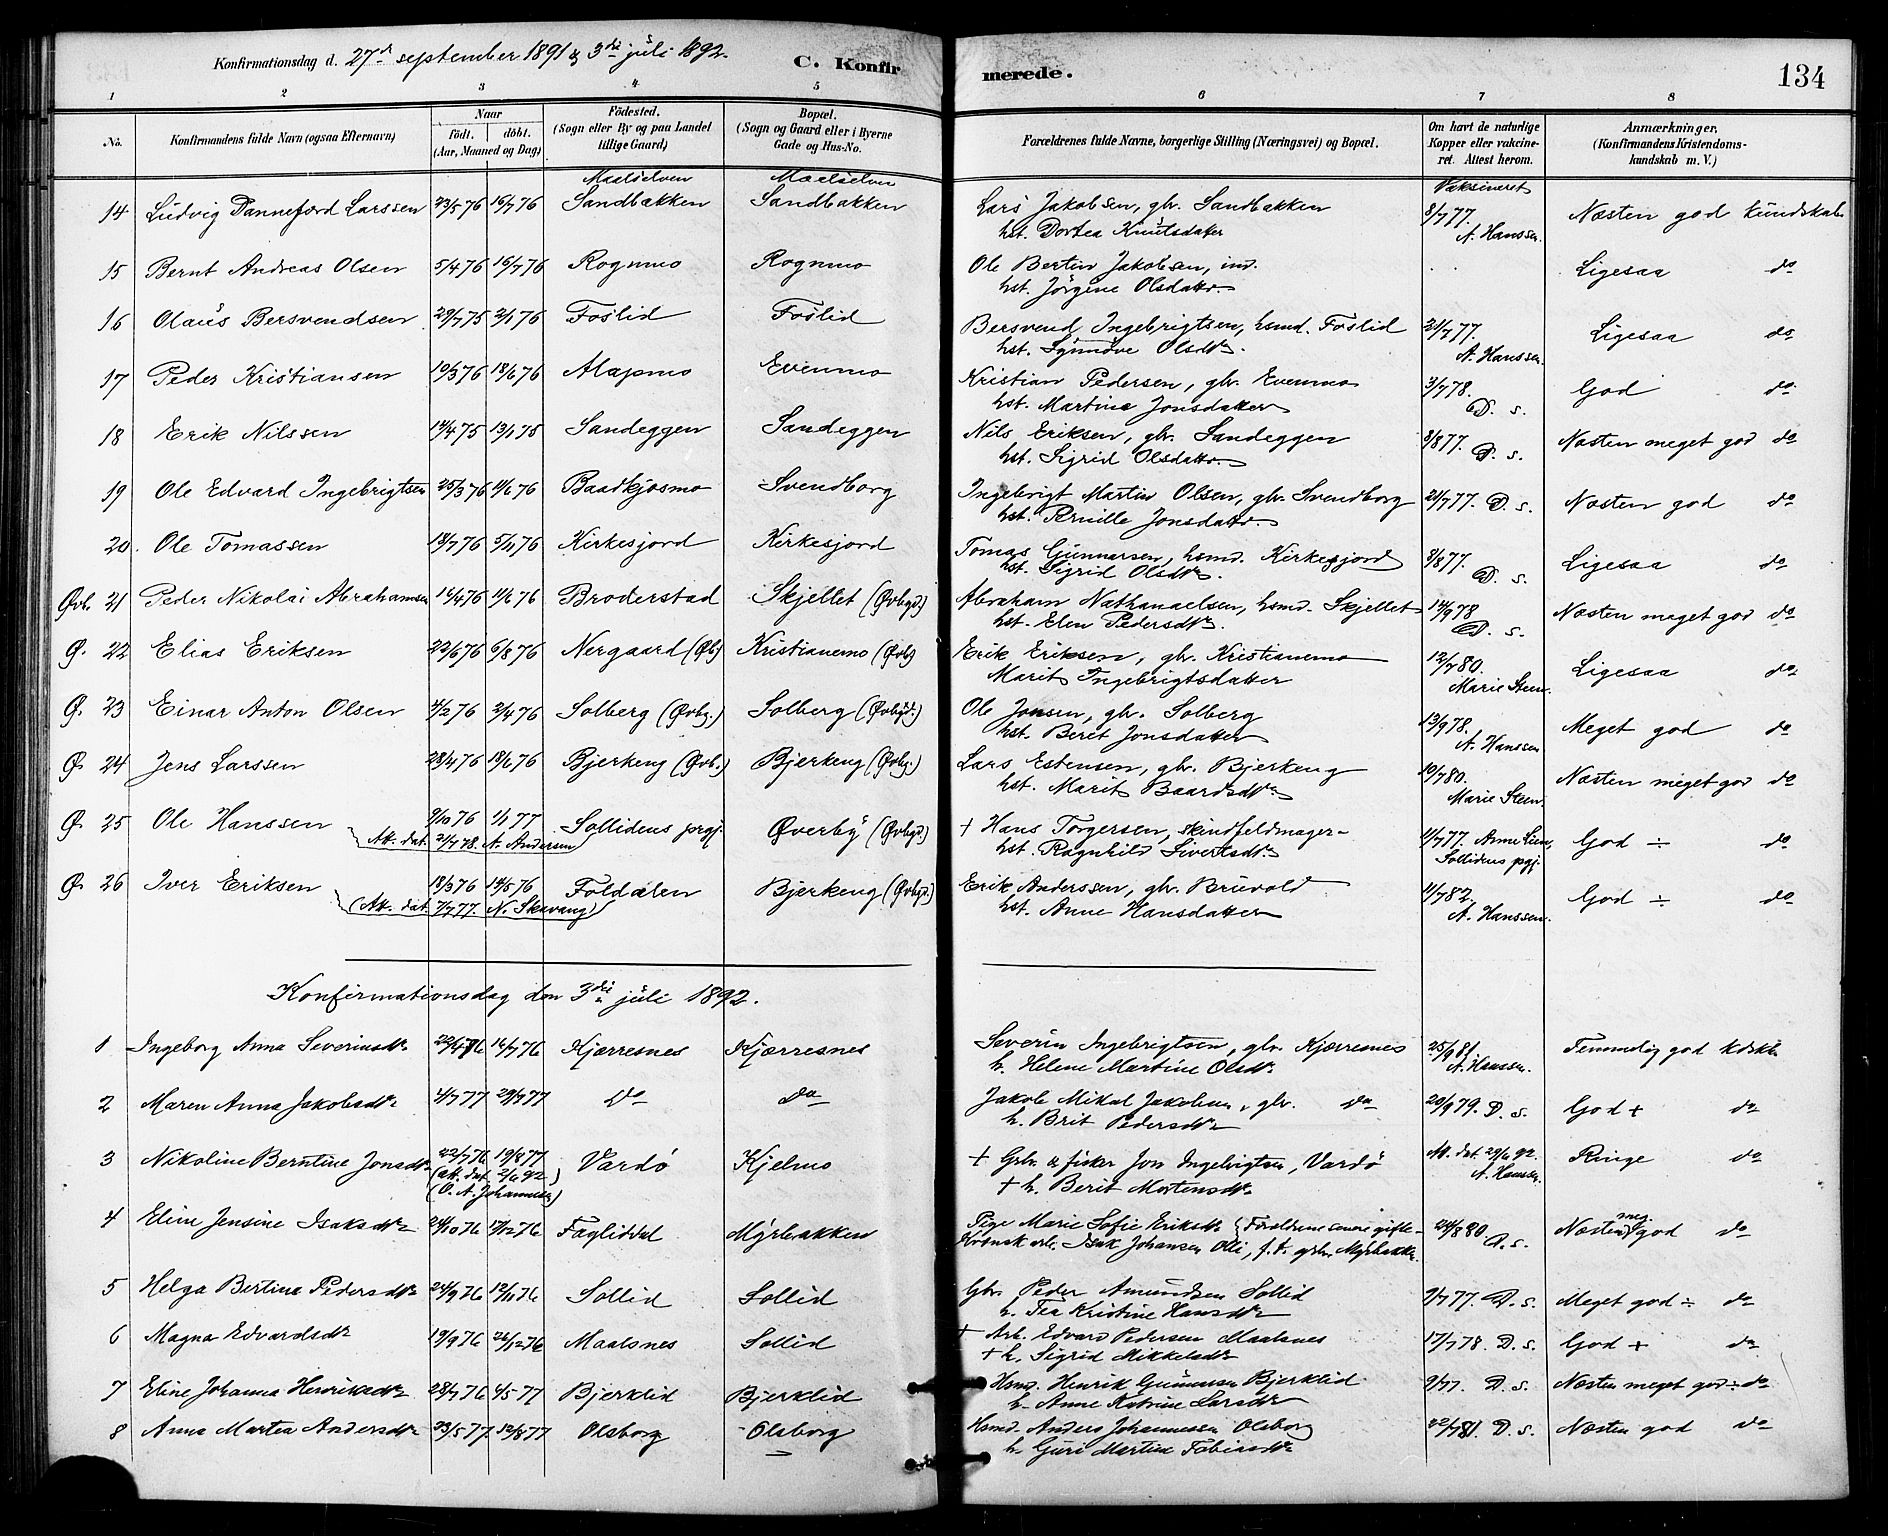 Konfirmationsdag d. 27de september 1891 & 3die juli 1892. C. Konfirmerede. 134
1 2 3 4 5 6 7 8
No. Konfirmandens fulde Navn (ogsaa Efternavn) Naar födt. döbt. (Aar, Maaned og Dag) Födested. (Sogn eller By og paa Landet tillige Gaard) Bopæl. (Sogn og Gaard eller i Byerne Gade og Hus-No. Forældrenes fulde Navne, borgerlige Stilling (Næringsvei) og Bopæl. Om havt de naturlige Kopper eller vakcineret. Attest herom. Anmærkninger, (Konfirmandens Kristendomskundskab m. V.)
Maalselven Maalselven Vaksineret
14 Ludvig Dannefærd Larssen 23/5 76 16/7 76 Sandbakken Sandbakken Lars Jakobsen, gbr. Sandbakken 8/7 77. Næsten god kundskab
hst. Dortea Knutsdatter A. Hanssen.
15 Bernt Andreas Olsen 5/4 76 16/7 76 Rognmo Rognmo Ole Bertin Jakobsen, ind. Ligesaa do
hst. Jörgine Olsdattr.
16 Olaus Bersvendsen 29/7 75 2/1 76 Foslid Foslid Bersvend Ingebrigtsen, hsmd. Foslid 21/7 77. Ligesaa do
hst. Synnöve Olsdtr. A. Hanssen.
17 Peder Kristiansen 10/3 76 18/6 76 Alapmo Evenmo Kristian Pedersen, gbr. Evenmo 3/7 78. God do
hst. Martina Jonsdatter D. s.
18 Erik Nilssen 14/4 75 13/1 75 Sandeggen Sandeggen Nils Eriksen, gbr. Sandeggen 3/8 77. Næsten meget god do
hst. Sigrid Olsdattr. D. s.
19 Ole Edvard Ingebrigtsen 25/3 76 11/6 76 Baadkjosmo Svendborg Ingebrigt Martin Olsen, gbr. Svendborg 21/7 77. D. s. Næsten god do
hst. Pernille Jonsdattr.
20. Ole Tomassen 18/7 76 5/11 76 Kirkesjord Kirkesjord Tomas Gunnarsen, hsmd. Kirkesjord 3/8 77. Ligesaa do
hst. Sigrid Olsdtr. D. s.
Øvb. 21 Peder Nikolai Abrahamsen 14/4 76 11/6 76 Broderstad Skjellet (Øvbgd.) Abraham Nathanaelsen, hsmd. Skjellet 14/9 78 Næsten meget god do
hst. Elen Pedersdtr. D. s.
Ø. 22 Elias Eriksen 22/6 76 6/8 76 Nergaard (Øb) Kristianemo (Øvb) Erik Eriksen, gbr. Kristianemo 12/7 80. Ligesaa do
Marit Ingebrigtsdatter Marie Steen.
Ø. 23 Einar Anton Olsen 2/2 76 2/4 76 Solberg (Øvbg.) Solberg (Øvbgd.) Ole Jonsen, gbr. Solberg 13/9 78. Meget god do
hst. Berit Jonsdatter A. Hanssen
Ø. 24 Jens Larssen 28/4 76 18/6 76 Bjerkeng (Øvb.) Bjerkeng (Øvbg.) Lars Estensen, gbr. Bjerkeng 10/7 80. Næsten meget god do
hst. Marit Baardsdtr. Marie Steen.
Ø. 25 Ole Hanssen 9/10 76 1/1 77 Sollidens prgj. Øverby (Øvbgd.) + Hans Torgersen, skindfeldmager 11/7 77. Anne Lien, God ÷ do
Att. dat. 21/7 78. A. Andersen hst. Ragnhild Sivertsdtr. Sollidens pgj.
Ø. 26 Iver Eriksen 18/3 76 14/5 76 Foldalen Bjerkeng (Øvbgd.) Erik Anderssen, gbr. Bruvold 11/7 82. God ÷ do
(Att. dat. 7/7 77. N. Skavang) hst. Anne Hansdatter A. Hanssen.
Konfirmationsdag den 3die juli 1892.
1 Ingeborg Anna Severinsdtr. 22/4 76 16/7 76 Kjærresnes Kjærresnes Severin Ingebrigtsen, gbr. Kjærresnes 25/9 81 Temmelig god kdskb
h. Helene Martine Olsdtr. A. Hanssen.
2 Maren Anna Jakobsdtr. 4/7 77 29/7 77 do do Jakob Mikal Jakobsen, gbr. do 20/9 79. D. s. God + do
h. Brit Pedersdtr.
3 Nikoline Berntine Jonsdtr. 22/7 76 19/8 77 Vardö Kjelmo + Gbr. & fisker Jon Ingebrigtsen, Vardö Att. dat. 29/6 92. Ringe do
(att. dat. 2/6 92) + h. Berit Mortensdtr. A. Hanssen.
(O. A. Johannessen)
4 Eline Jensine Isaksdtr. 24/10 76 17/12 76 Fagliddal Myrbakken Pige Marie Sofie Eriksdtr. (Forældrene senere gifte- 24/8 80 Næsten meg. god do
Kvænsk arb. Isak Johansen Olli, f. t. gbr. Myrbakken. D. s.
5 Helga Bertina Pedersdtr. 24/9 76 12/11 76 Sollid Sollid Gbr. Peder Amundsen Sollid 9/7 77. D. s. Meget god ÷ do
h. Tea Kristine Hansdtr.
6 Magna Edvardsdtr. 19/9 76 26/12 76 Maalsnes Sollid + Arb. Edvard Pedersen Maalsnes 17/7 78. D. s. God + do
+ h. Sigrid Mikkelsdtr.
7 Eline Johanna Henriksdtr. 28/7 76 4/5 77 Bjerklid Bjerklid Hsmd. Henrik Gunnarsen Bjerklid 9/77. D. s. Næsten meget god ÷ do
h. Anne Katrine Larsdtr.
8 Anna Martea Andersdtr. 23/5 77. 12/8 77 Olsborg Olsborg Hsmd. Anders Johannessen Olsborg 22/7 81. D. s. Næsten god do
h. Guri Martina Tobiasdtr.